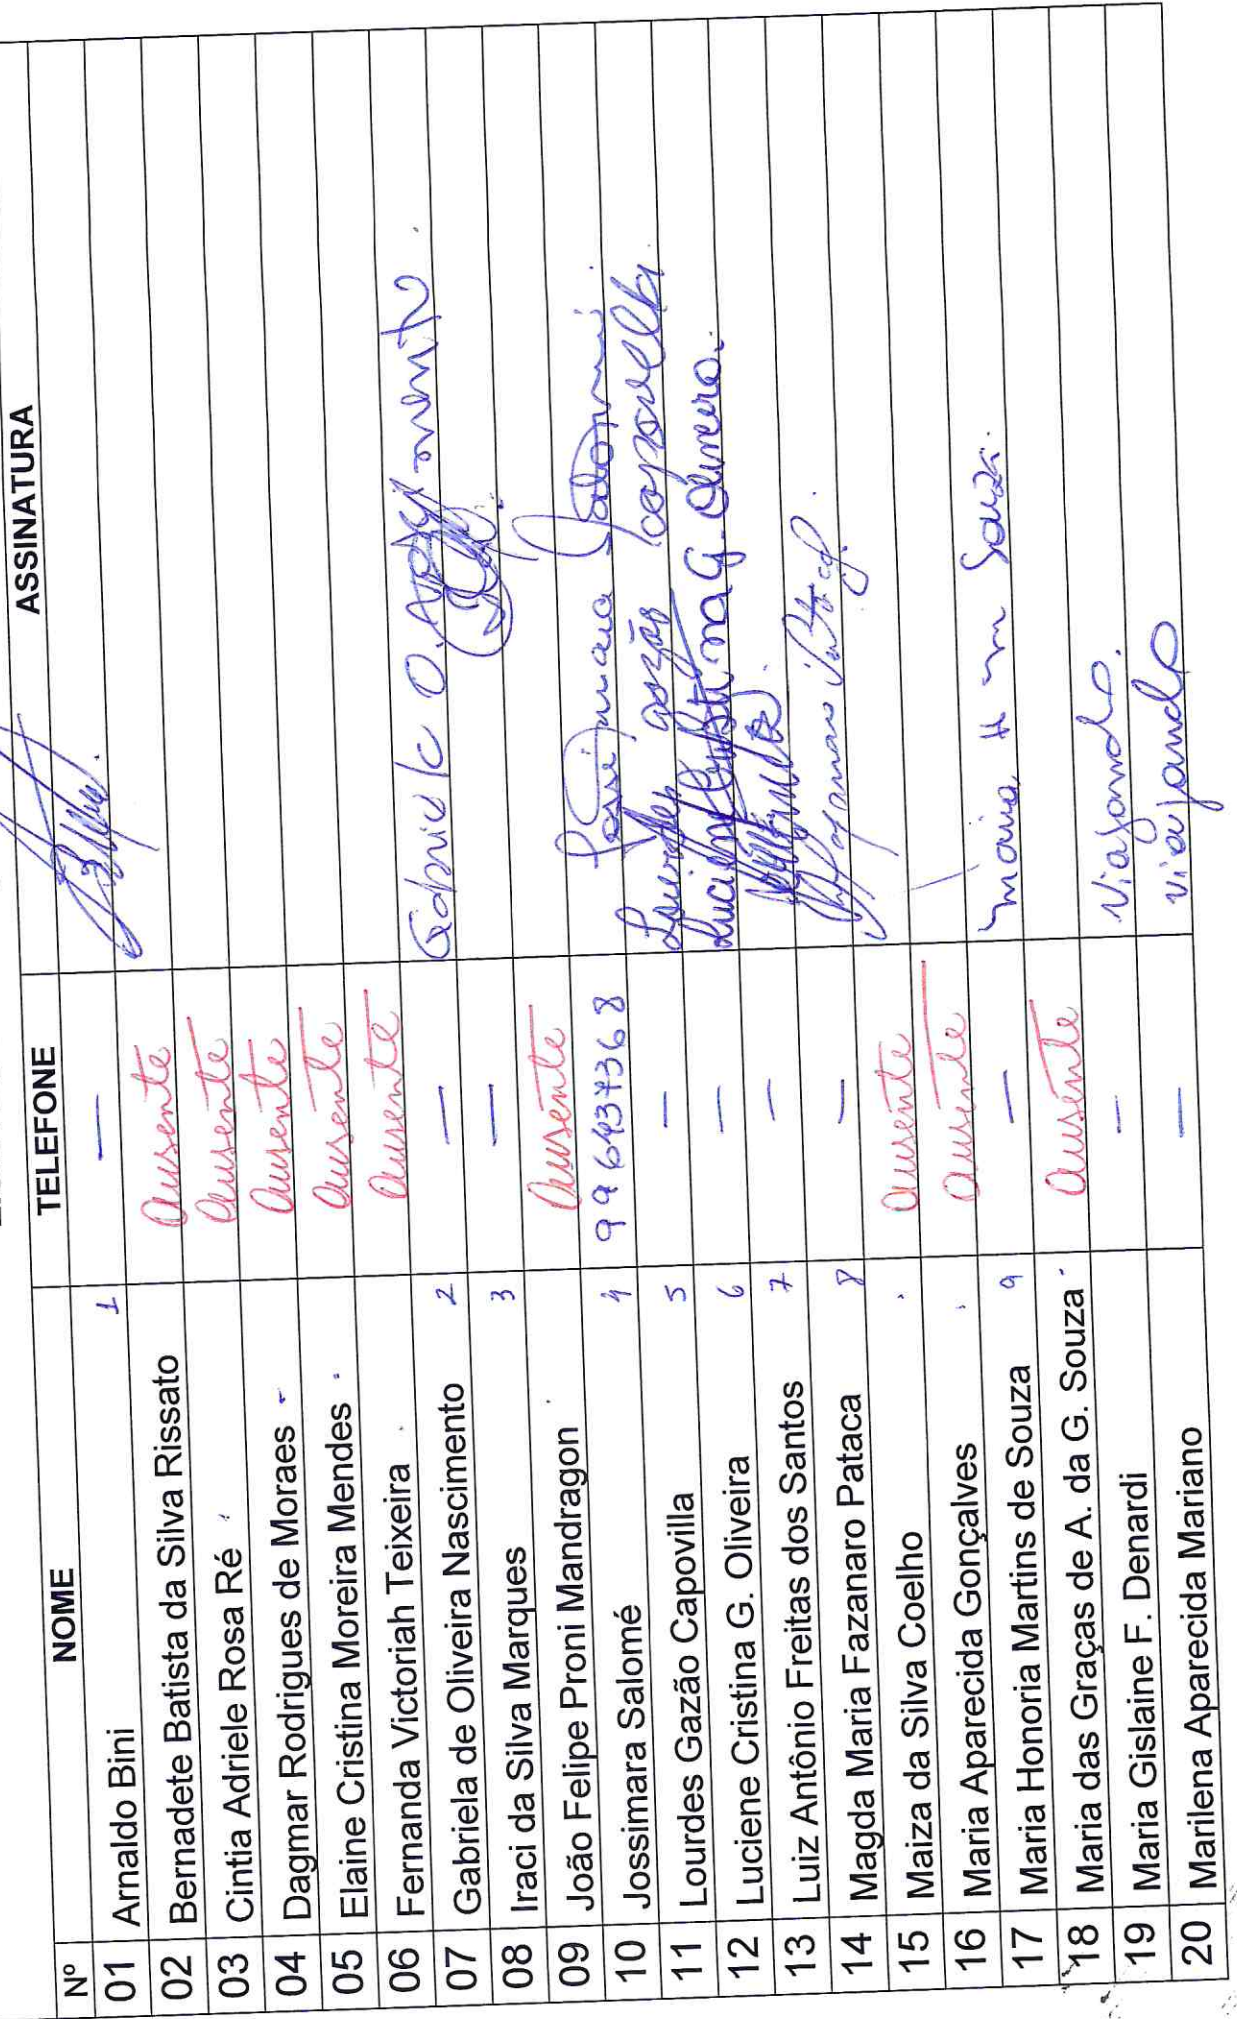 Nº NOME TELEFONE ASSINATURA
01 Arnaldo Bini 1 —
02 Bernadete Batista da Silva Rissato Ausente
03 Cintia Adriele Rosa Ré Ausente
04 Dagmar Rodrigues de Moraes - Ausente
05 Elaine Cristina Moreira Mendes Ausente
06 Fernanda Victoriah Teixeira Ausente
07 Gabriela de Oliveira Nascimento 2 —
08 Iraci da Silva Marques 3 —
09 João Felipe Proni Mandragon Ausente
10 Jossimara Salomé 4 996437368
11 Lourdes Gazão Capovilla 5 — Lourdes gazão Capovilla
12 Luciene Cristina G. Oliveira 6 — Luciene Cristina G. Oliveira.
13 Luiz Antônio Freitas dos Santos 7 —
14 Magda Maria Fazanaro Pataca 8 —
15 Maiza da Silva Coelho Ausente
16 Maria Aparecida Gonçalves Ausente
17 Maria Honoria Martins de Souza 9 — Maria H m Souza.
18 Maria das Graças de A. da G. Souza Ausente
19 Maria Gislaine F. Denardi — Viajando.
20 Marilena Aparecida Mariano — viajando